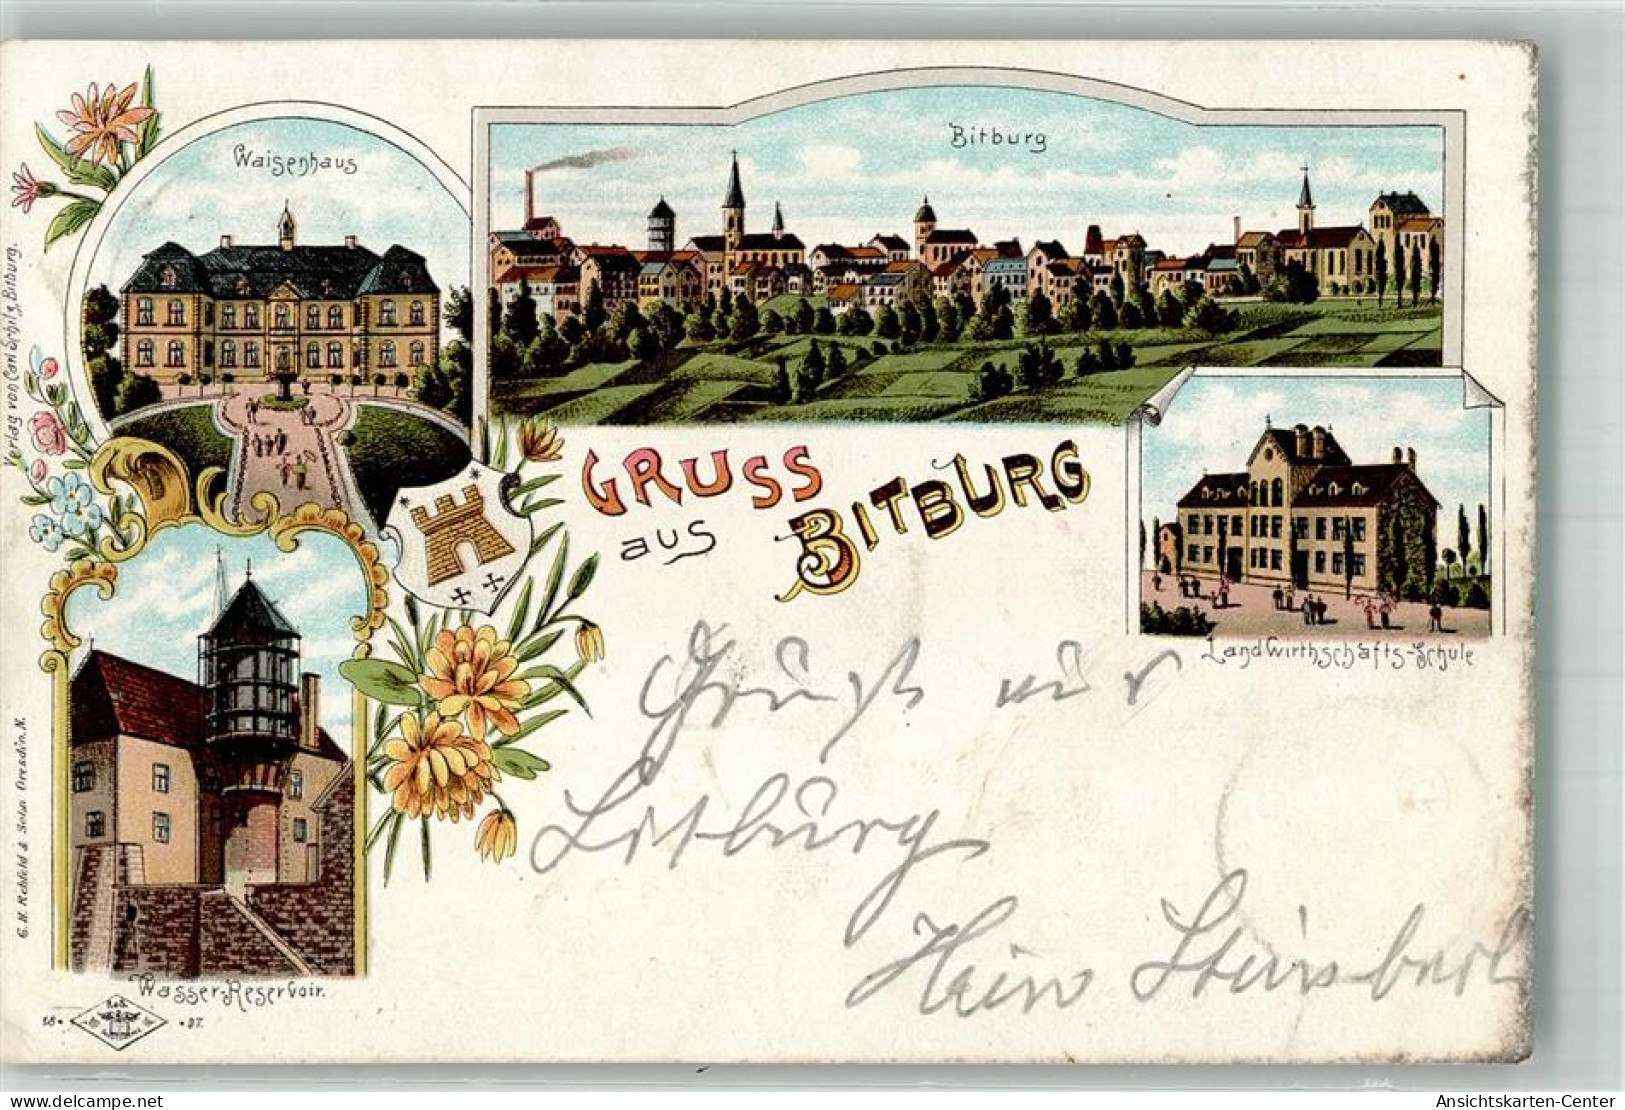 Waisenhaus
Bitburg
Verlag von Carl Schilz, Bitburg.
GRUSS
aus
BITBURG
LandWirthschafts-Schule
Gruß aus
Bitburg
Hein
G. H. Rehfeld & Sohn Dresden. N.
Wasser-Reservoir.
18 • • 97.
delcampe.net
AnsichtsKarten-Center